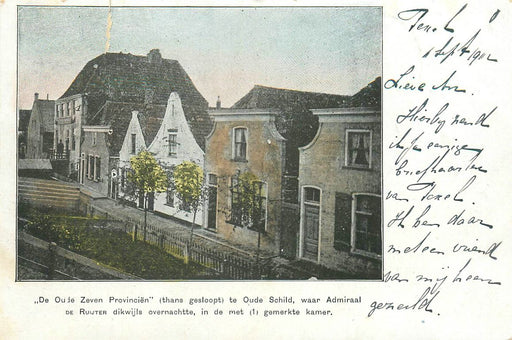 Texel
1 Sept 1902
Lieve An.
Hierbij zend
ik je eenige
briefkaarten
van Texel.
Ik ben daar
met een vriend
van mij heen
gezeild.
„De Oude Zeven Provinciën" (thans gesloopt) te Oude Schild, waar Admiraal
DE RUIJTER dikwijls overnachtte, in de met (1) gemerkte kamer.